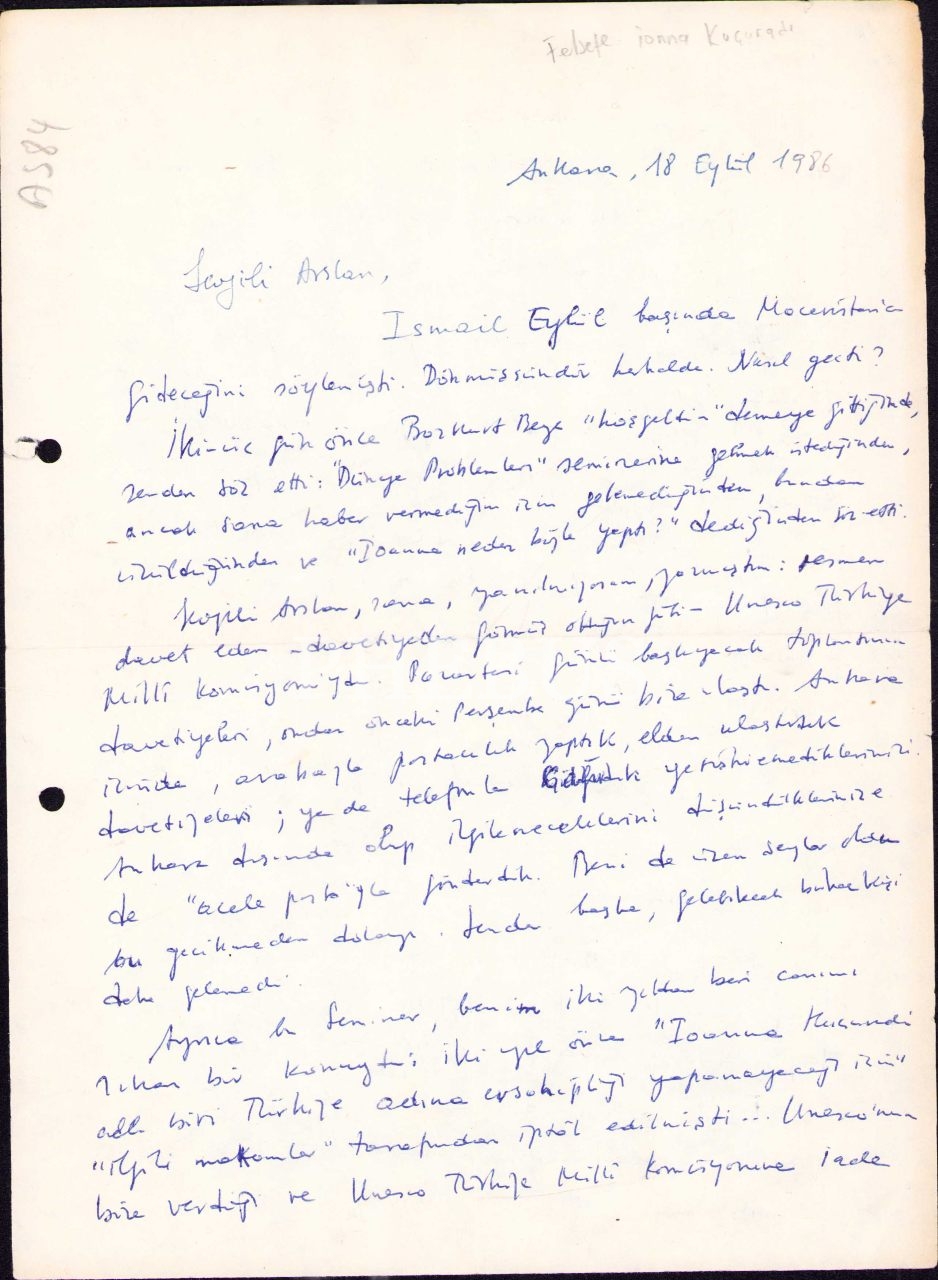 Felsefe Ioanna Kuçuradi
AS84
Ankara, 18 Eylül 1986
Sevgili Arslan,
Ismail Eylül başında Macaristan'a
gideceğini söylemişti. Dönmüşsündür herhalde. Nasıl geçti?
İki-üç gün önce Bozkurt Beye "hoşgeldin" demeye gittiğimde,
senden söz etti: "Dünya Problemleri" seminerine gelmek istediğinden,
ancak sana haber vermediğim için gelemediğinden, bundan
üzüldüğünden ve "Ioanna neden böyle yaptı?" dediğinden söz etti.
Sevgili Arslan, sana, yanılmıyorsam, yazmıştım: resmen
davet eden -davetiyeden görmüş olduğun gibi- Unesco Türkiye
Millî Komisyonuydu. Pazartesi günü başlayacak toplantının
davetiyeleri, ondan önceki Perşembe günü bize ulaştı. Ankara
içinde, arabayla postacılık yaptık, elden ulaştırdık
davetiyeleri; ya da telefonla yetiştiremediklerimizi.
Ankara dışında olup ilgileneceklerini düşündüklerimize
de "acele posta"yla gönderdik. Beni de üzen şeyler oldu
bu gecikmeden dolayı. Senden başka, gelebilecek birkaç kişi
daha gelemedi.
Ayrıca bu Seminer, benim iki yıldan beri canımı
sıkan bir konuydu: iki yıl önce "Ioanna Kuçuradi
adlı biri Türkiye adına evsahipliği yapamayacağı için"
"ilgili makamlar" tarafından iptâl edilmişti... Unesco'nun
bize verdiği ve Unesco Türkiye Millî Komisyonuna iade